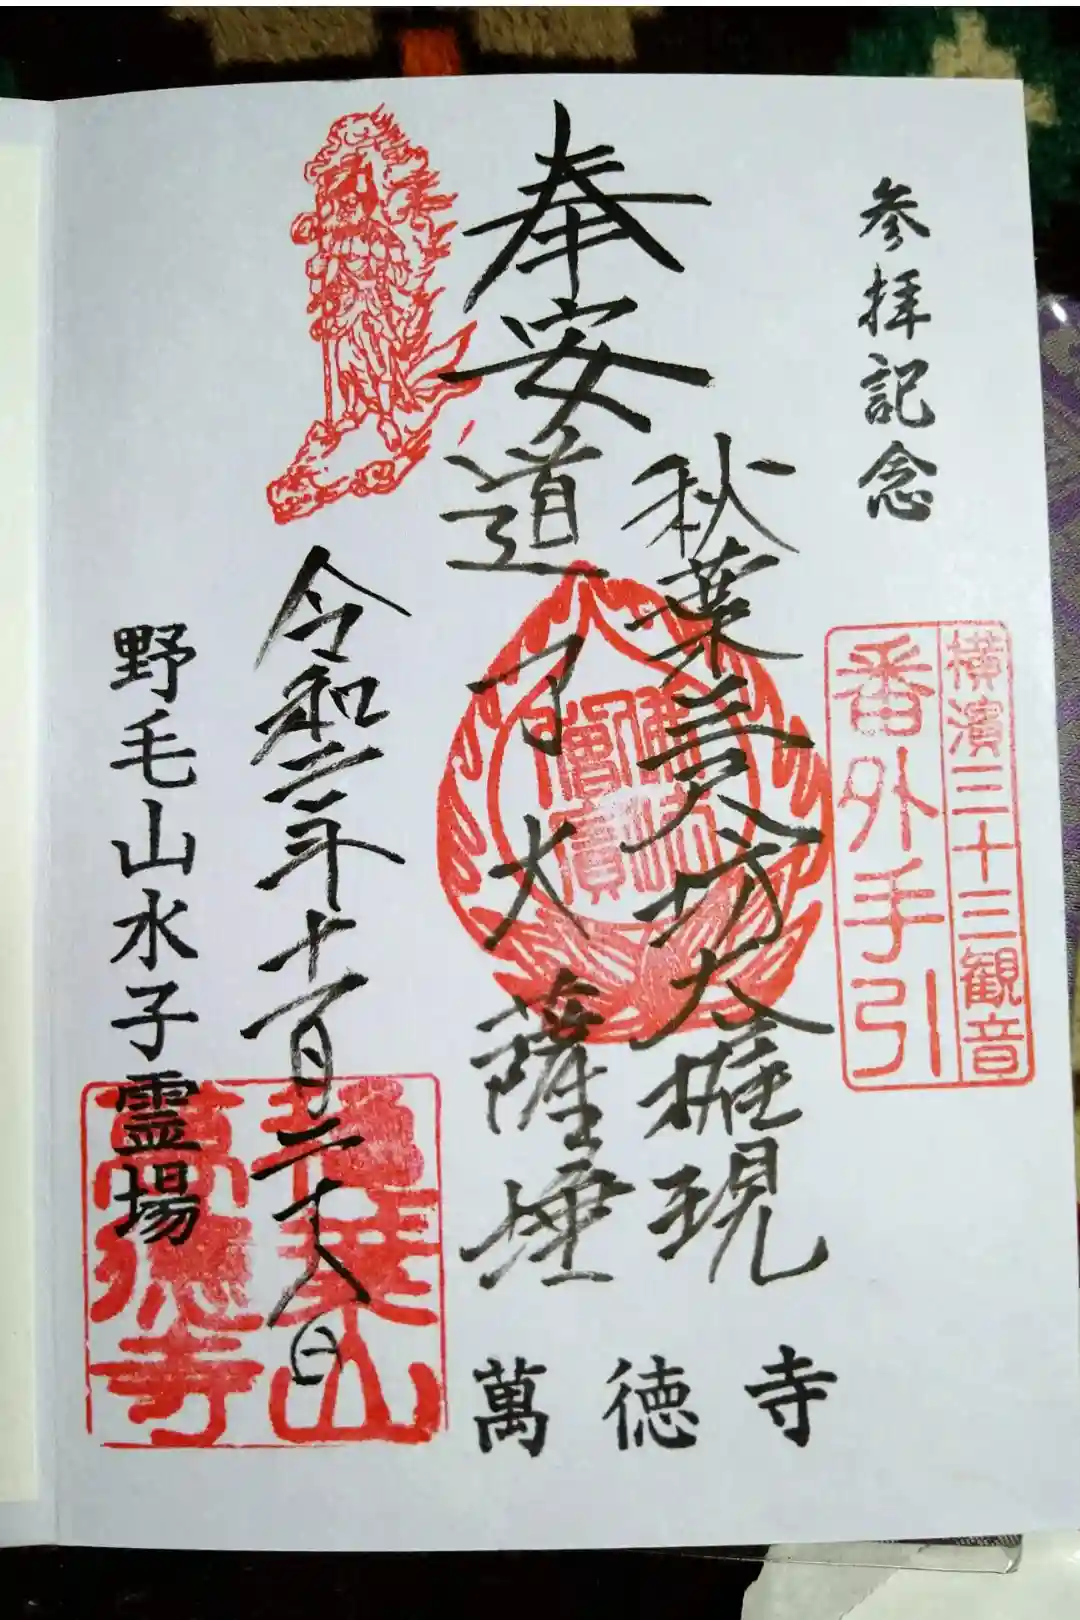 参拝記念
横濱三十三観音
番外手引
奉安
秋葉三尺坊大権現
道了大薩埵
佛法
僧寶
令和二年十一月二十八日
野毛山水子霊場
萬徳寺
萬徳寺